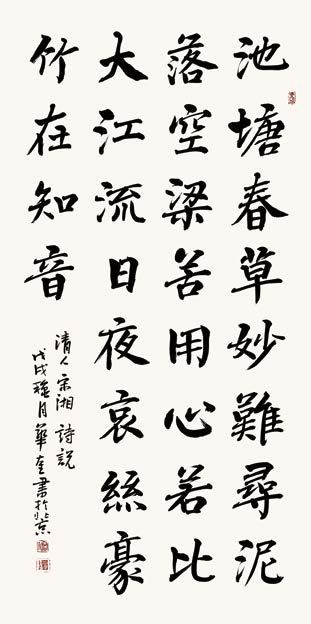 池塘春草妙難尋泥
落空梁苦用心若比
大江流日夜哀絲豪
竹在知音
清人宋湘詩說
戊戌月華奎書於北京